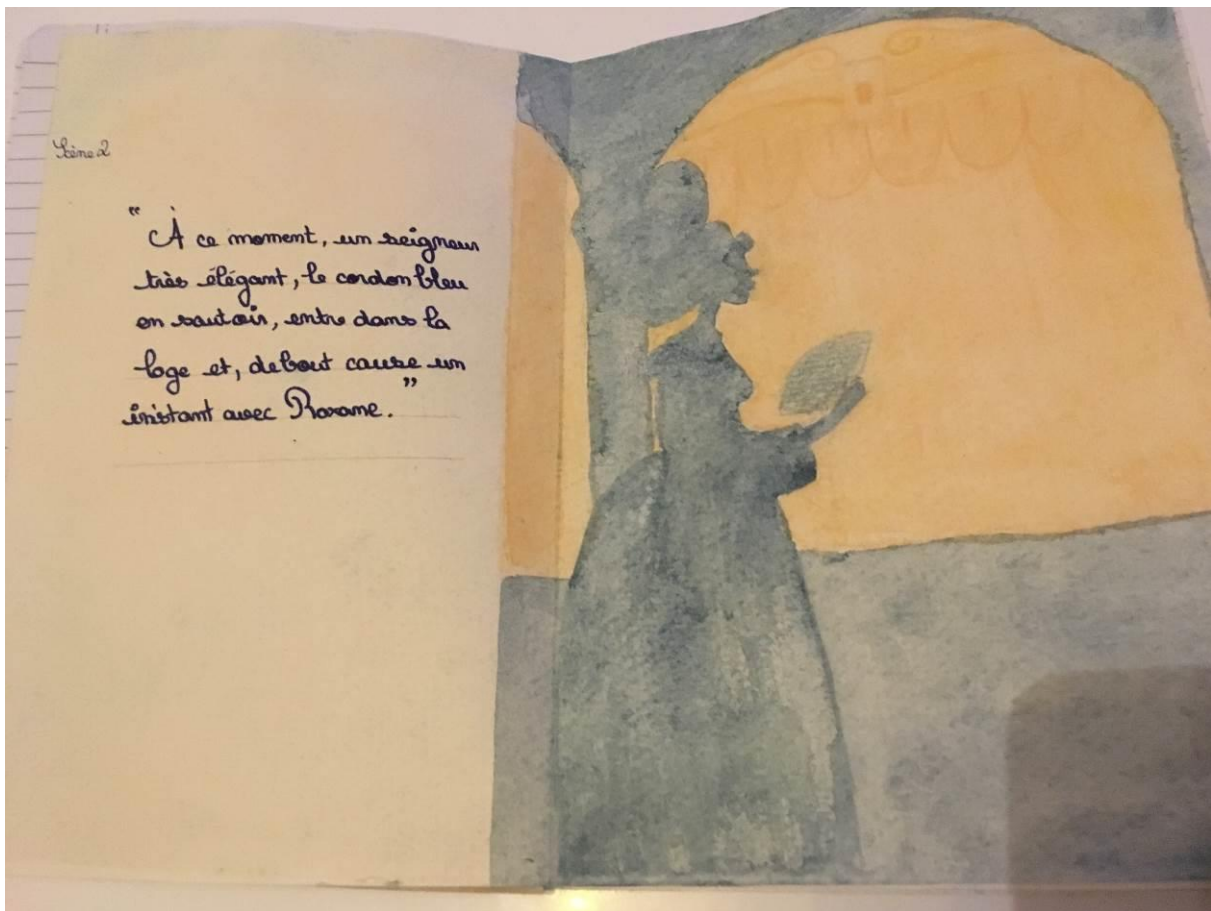 Scène 2
"
À ce moment, un seigneur
très élégant, le cordon bleu
en sautoir, entre dans la
loge et, debout cause un
instant avec Roxane. "